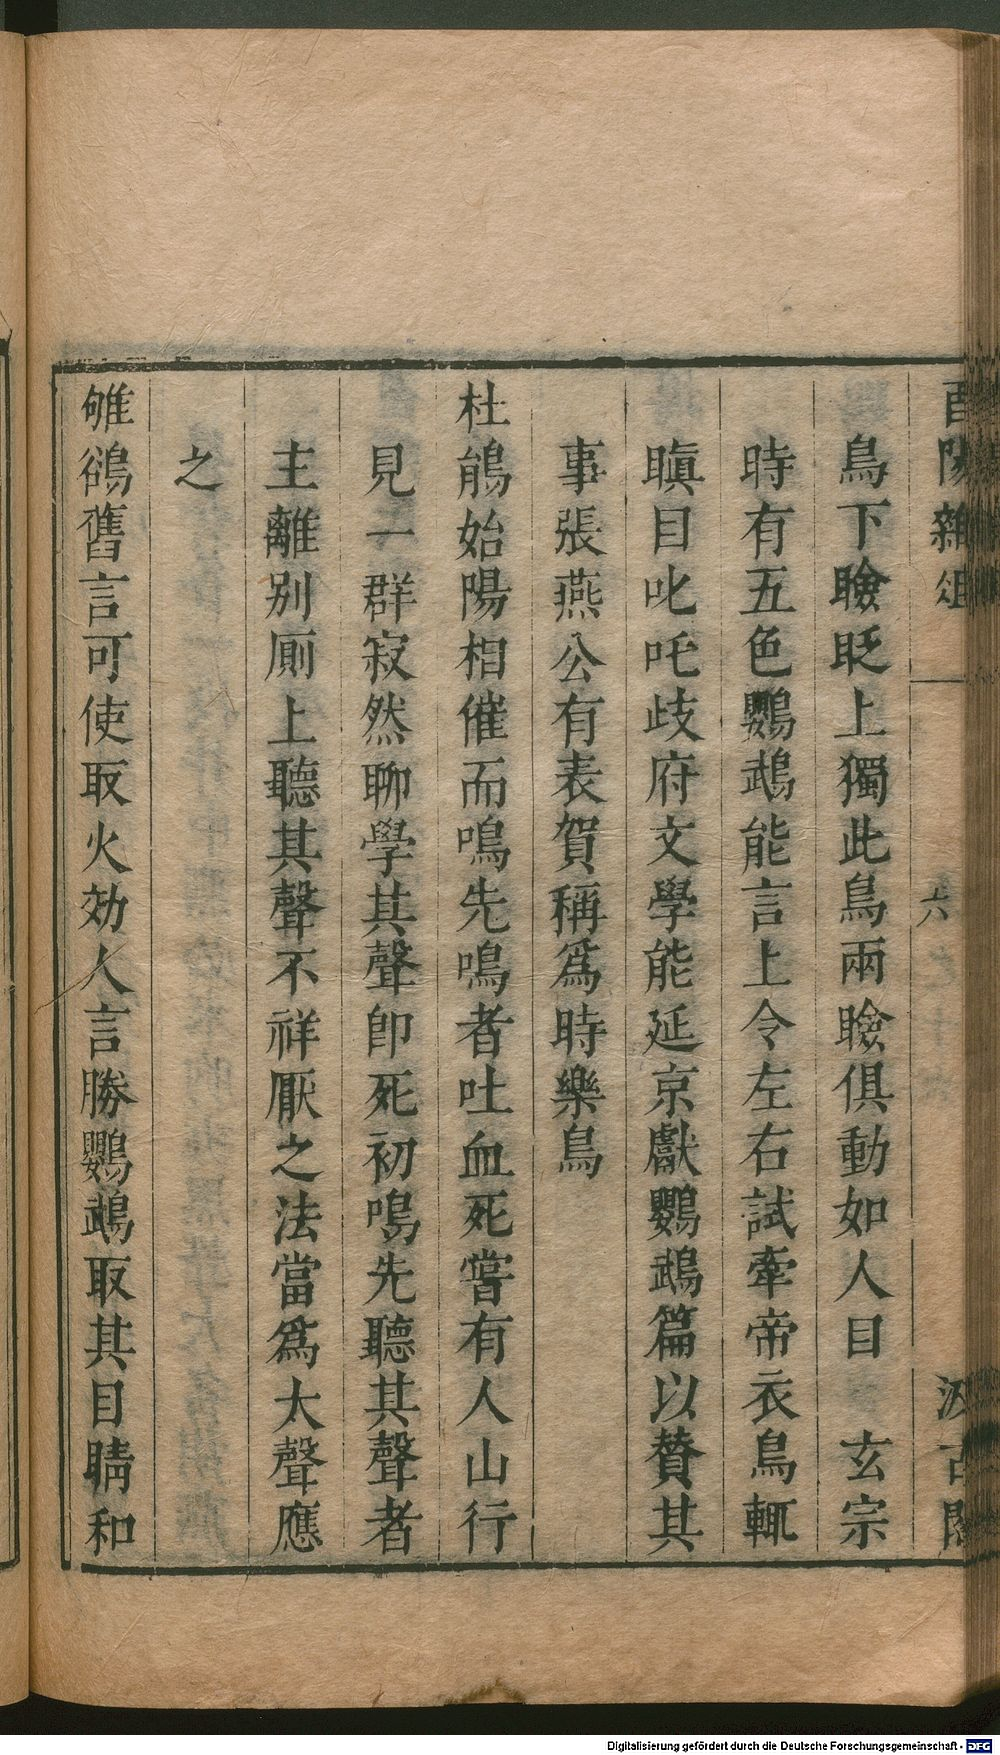 酉陽雜俎
六
汲古閣
鳥下瞼眨上獨此鳥兩瞼俱動如人目　玄宗
時有五色鸚鵡能言上令左右試牽帝衣鳥輒
瞋目叱吒歧府文學能延京獻鸚鵡篇以贊其
事張燕公有表賀稱爲時樂鳥
杜鵑始陽相催而鳴先鳴者吐血死嘗有人山行
見一群寂然聊學其聲卽死初鳴先聽其聲者
主離別厠上聽其聲不祥厭之法當爲大聲應
之
鴝鵒舊言可使取火効人言勝鸚鵡取其目睛和
Digitalisierung gefördert durch die Deutsche Forschungsgemeinschaft - DFG